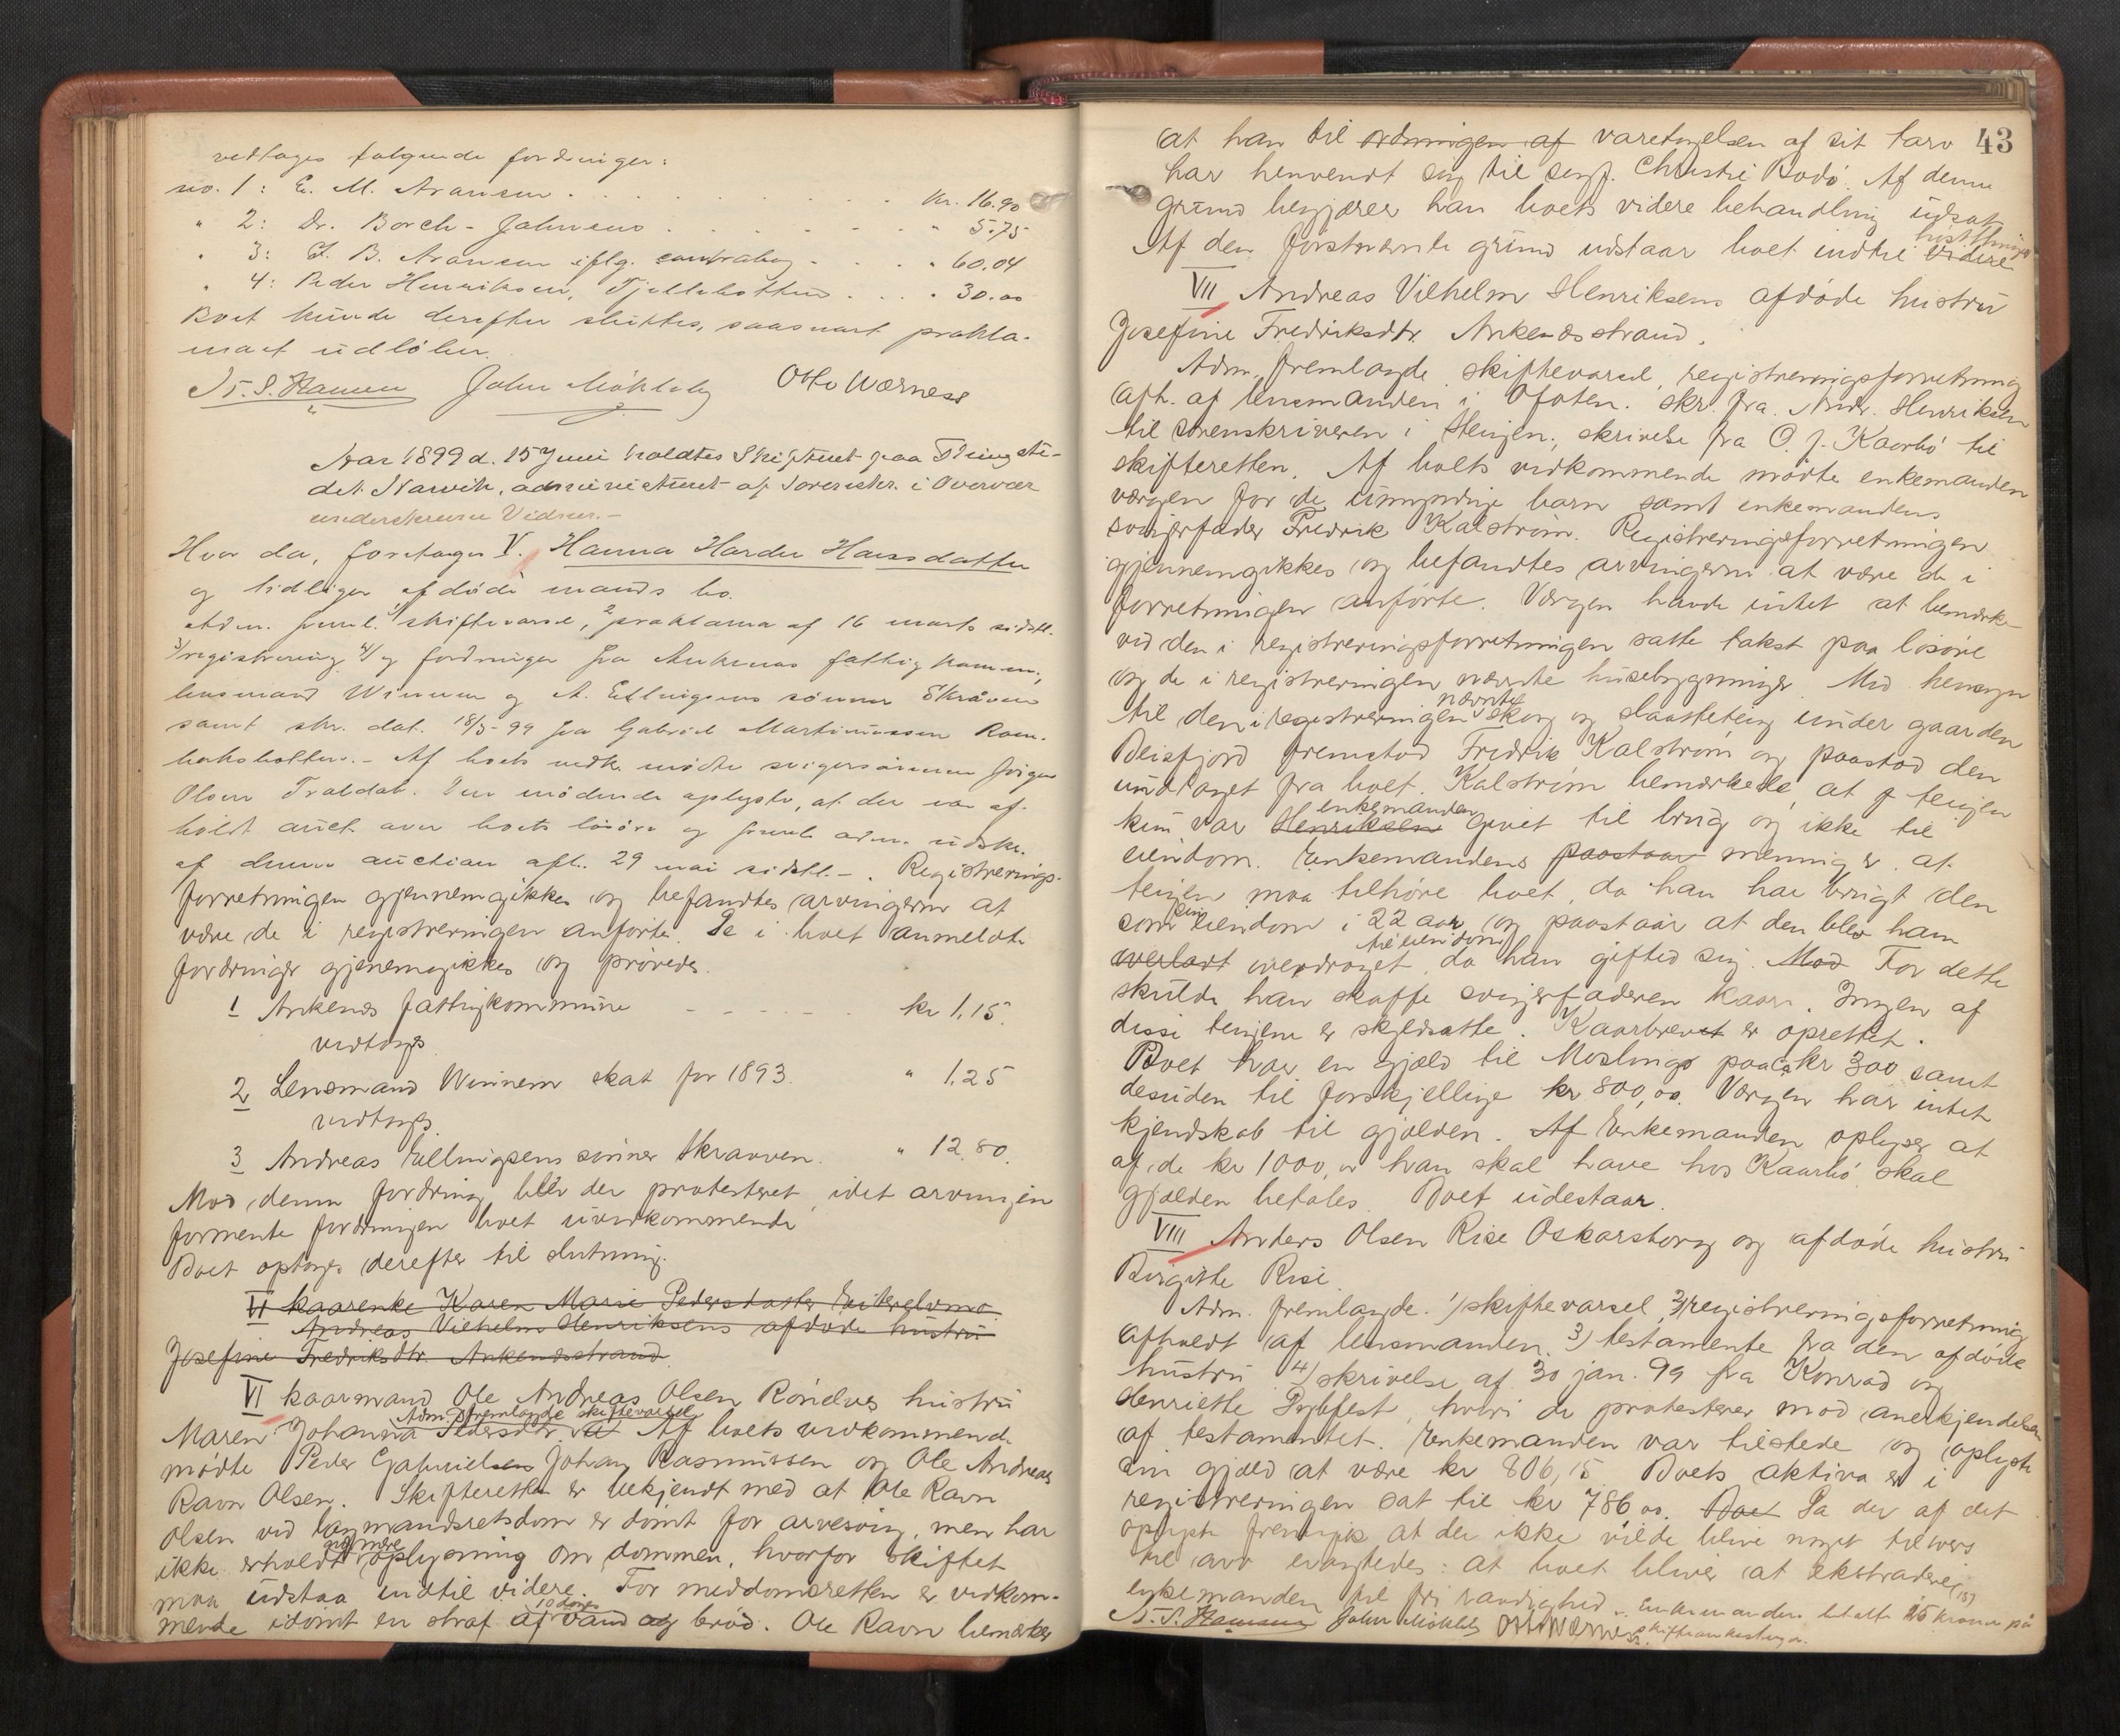 vedtages følgende fordringer:
no. 1: E. M. Aronsen . . . . kr. 16.90
" 2: Dr. Borch-Johnsens . . . . " 5.75
" 3: E. B. Aronsen iflg. contrabog . . . " 60.04
" 4: Peder Henriksen, Fjellebotten . . . " 30.00
Boet kunde derefter sluttes, saasnart prokla-
mact udløber.
N. S. Hansen John Møkleby Otto Wærness
Aar 1899 d. 15 Juni holdtes Skifteret paa Thingste-
det Narvik, administreret af Sorenskr. i
underskrevne Vidner.-
Hvor da, foretages V. Hanna Hansdatter
og tidligere afdøde mands bo.
Adm. freml. 1/ skiftevarsel, 2/ proklama af 16 marts sidstl.
3/ registrering 4/ og fordringer fra Ankenes fattigkommune,
lensmand Winnem og A. Ellingsens sønner Skråven
samt skr. dat. 18/5-99 fra Gabriel Martinussen Rom-
baksbotten.- Af boets vedk. mødte svigersønnen Jørgen
Olsen Traldal. Den mødende oplyste, at der var af-
holdt auct. over boets løsøre og freml. adm. udskr.
af denne auction afh. 29 mai sidstl.-. Registrerings-
forretningen gjennemgikkes og befandtes arvingerne at
være de i registreringen anførte. De i boet anmeldte
fordringer gjenemgikkes og prøvedes.
1 Ankenes fattigkommune - - - - - kr 1.15.
vedtoges
2 Lensmand Winnem skat for 1893. " 1.25
vedtoges.
3 Andreas Ellingsens sønner Skraaven. " 12.80.
Mod denne fordring blev der protesteret, idet arvingen
formente fordringen boet uvedkommende
Boet optoges derefter til slutning.
VI kaarenke Karen Marie Pedersdatter
Andreas Vilhelm Henriksens afdøde hustru
Josefine Fredriksdtr. Ankenesstrand.
VI kaarmand Ole Andreas Olsen Røndves hustru
Adm. fremlagde skiftevarsel
Maren Johanna Pedersdtr. Af boets vedkommende
mødte Peder Gabrielsen Johan Rasmussen og Ole Andreas
Ravn Olsen. Skifteretten er bekjendt med at Ole Ravn
Olsen ved lagmandsretsdom er dømt for arvesvig, men har
nærmere
ikke erholdt oplysning om dommen, hvorfor skiftet
maa udstaa indtil videre. For meddomsretten er vedkom-
10 dages
mende idømt en straf af vand og brød. Ole Ravn bemærker
43
at han til ordningen af varetagelsen af sit tarv
har henvendt sig til sagf. Christie Bodø. Af denne
grund begjærer han boets videre behandling udsat
høstthinget
Af den førstnævnte grund udstaar boet indtil videre
VII Andreas Vilhelm Henriksens afdøde hustru
Josefine Fredriksdtr. Ankenesstrand.
Adm. fremlagde skiftevarsel, registreringsforretning
afh. af lensmanden i Ofoten. skr. fra Andr. Henriksen
til sorenskriveren i Steigen, skrivelse fra O. J. Kaarbø til
skifteretten. Af boets vedkommende mødte enkemanden
værgen for de umyndige barn samt enkemandens
svigerfader Fredrik Kalstrøm. Registreringsforretningen
gjennemgikkes og befandtes arvingerne at være de i
forretningen anførte. Værgen havde intet at bemærke
ved den i registreringsforretningen satte takst paa løsøre
og de i registreringen nævnte husebygninger. Med hensyn
nævnte
til den i registreringen skog og slaatteteig under gaarden
Beisfjord fremstod Fredrik Kalstrøm og paastod den
undtaget fra boet. Kalstrøm bemærkede, at teigen
enkemanden
kun var Henriksen givet til brug og ikke til
eiendom. Enkemandens paastaar mening er at
teigen maa tilhøre boet, da han har brugt den
sin
som eiendom i 22 aar og paastaar at den blev ham
til eiendom
overladt overdraget, da han gifted sig. Mod For dette
skulde han skaffe svigerfaderen kaar. Ingen af
disse teigene er skyldsatte. Kaarbrevet er oprettet.
Boet har en gjæld til Moslings paa ca kr 300 samt
desuden til forskjellige kr 800,00. Værgen har intet
kjendskab til gjælden. Af Enkemanden oplyser at
af de kr 1000,00 han skal have hos Kaarbø skal
gjælden betales. Boet udestaar.
VIII Anders Olsen Rise Oskarsborg og afdøde hustru
Birgitte Rise
Adm. fremlagde 1/ skiftevarsel, 2/ registreringsforretning
afholdt af lensmanden, 3) testamente fra den afdøde
hustru 4) skrivelse af 30 jan. 99 fra Konrad og
Henriette hvori de protesterer mod anerkjendelsen
af testamentet. Enkemanden var tilstede og oplyste
sin gjæld at være kr 806,15. Boets aktiva er i
registreringen sat til kr 786 00. Boet Da der af det
oplyste fremgik at der ikke vilde blive noget tilovers
til arv eragtedes: at boet bliver at ekstradere
(15)
enkemanden til fri raadighed. - Enkemanden betalte 15 kroner på
N. S. Hansen John Møkleby Otto Wærness skifteomkostninger.